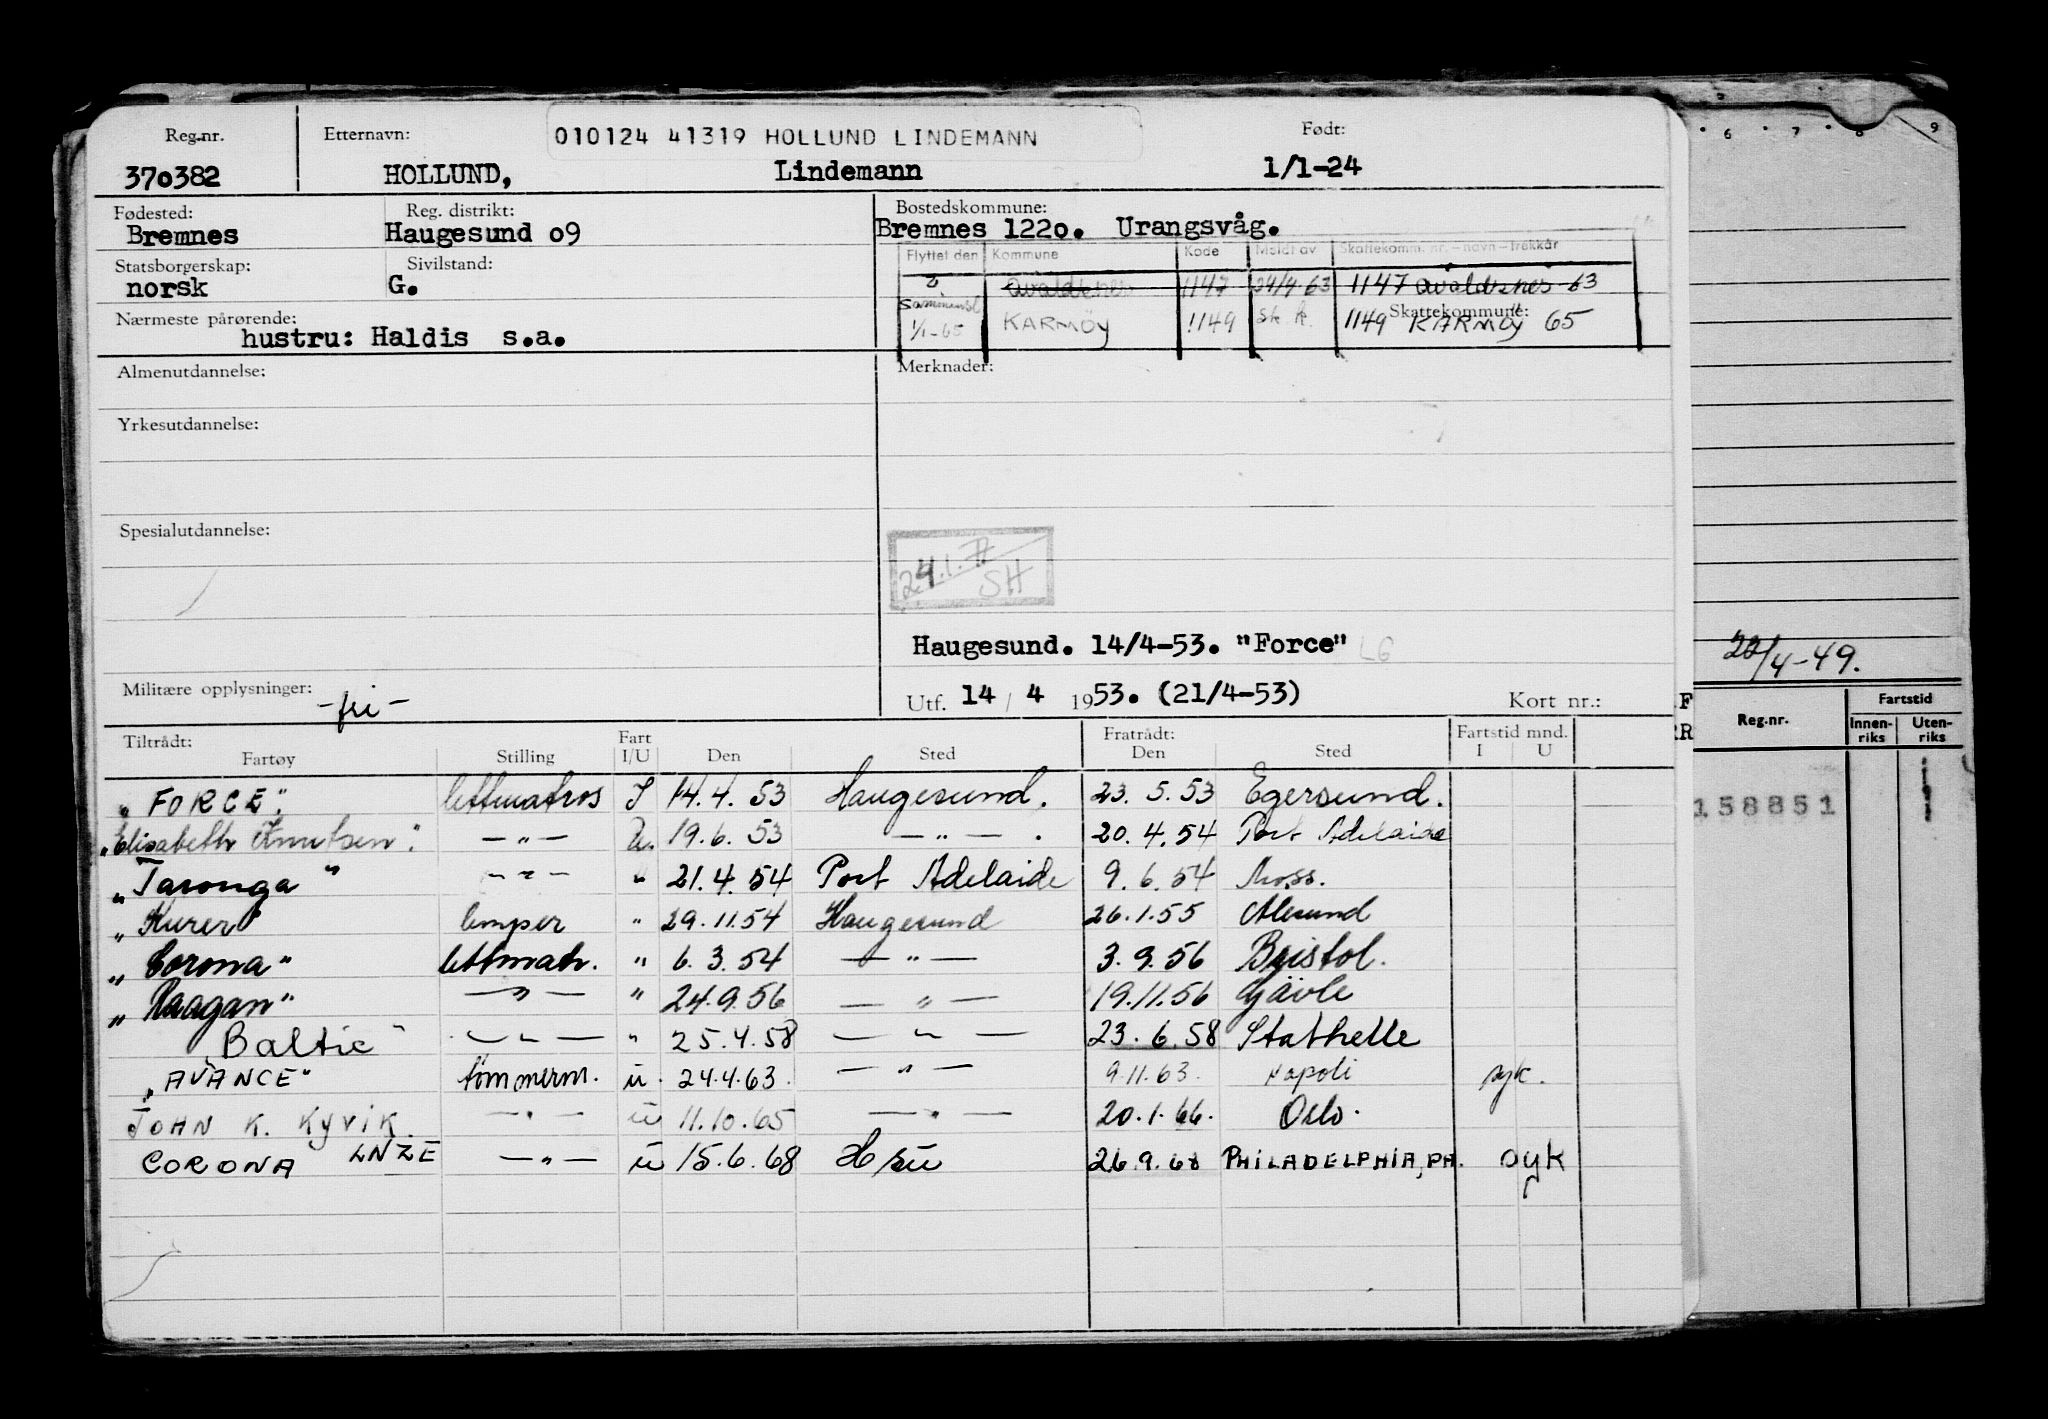 Reg.nr. Etternavn: 010124 41319 HOLLUND LINDEMANN Født:
370382 HOLLUND, Lindemann 1/1-24
Fødested: Reg. distrikt: Bostedskommune:
Bremnes Haugesund 09 Bremnes 1220. Urangsvåg.
Flyttet den Kommune Kode Meldt av Skattekomm. nr. - navn - trekkår
Statsborgerskap: Sivilstand:
norsk G. Avaldsnes 1147 24/4 63 1147 Avaldsnes 63
Nærmeste pårørende: Skattekommune:
hustru: Haldis s.a. 1/1-65 KARMÖY 1149 1149 KARMÖY 65
Almenutdannelse: Merknader:
Yrkesutdannelse:
Spesialutdannelse:
24.1.77
SH
Haugesund. 14/4-53. "Force" LG
Militære opplysninger: -fri-
Utf. 14 / 4 1953. (21/4-53) Kort nr.:
Tiltrådt: Fart Fratrådt: Fartstid mnd.
Fartøy Stilling I/U Den Sted Den Sted I U
"FORCE". lettmatros I 14.4.53 Haugesund. 23.5.53 Egersund.
"Elisabeth Knutsen". -"- U. 19.6.53 -"- . 20.4.54 Port Adelaide
"Taronga" -"- " 21.4.54 Port Adelaide 9.6.54 Moss.
"Kurer" lemper " 29.11.54 Haugesund 26.1.55 Ålesund
"Corona" lettmatr. " 6.3.54 -"- 3.9.56 Bristol.
"Raagan" -"- " 24.9.56 -"- 19.11.56 Gävle
"Baltic" -"- " 25.4.58 -"- 23.6.58 Stathelle
"AVANCE" tömmerm. u. 24.4.63. -"- 9.11.63. Napoli syk.
JOHN K. KYVIK. -"- u 11.10.65 -"- 20.1.66. Oslo.
CORONA LNZE -"- u 15.6.68 H su 26.9.68 PHILADELPHIA, PA. syk
6 7 8 9
20/4-49.
Fartstid
Reg.nr. Innen-riks Uten-riks
158851